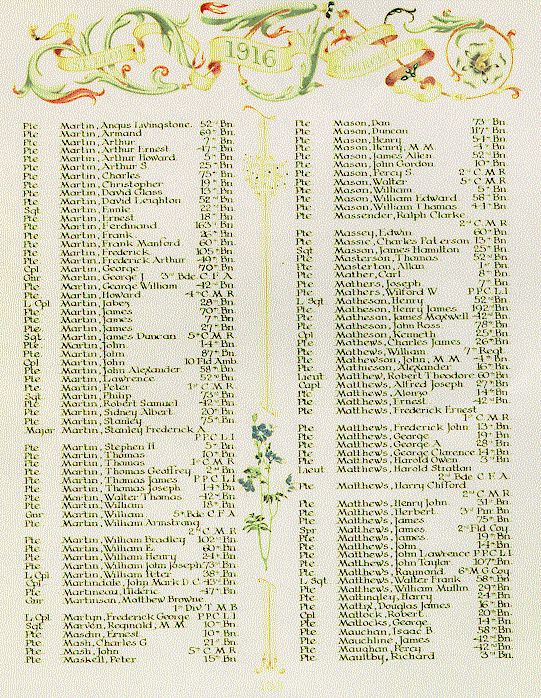 1916
Pte Martin, Angus Livingstone. 52nd Bn.
Pte Martin, Armand 60th Bn.
Pte Martin, Arthur 7th Bn.
Pte Martin, Arthur Ernest 47th Bn.
Pte Martin, Arthur Howard. 5th Bn.
Pte Martin, Arthur S 25th Bn.
Pte Martin, Charles 75th Bn.
Pte Martin, Christopher 19th Bn.
Pte Martin, David Glass 13th Bn.
Pte Martin, David Leighton 52nd Bn.
Sgt Martin, Ennie 22nd Bn.
Pte Martin, Ernest 18th Bn.
Pte Martin, Ferdinand 163rd Bn.
Pte Martin, Frank 26th Bn.
Pte Martin, Frank Manford 60th Bn.
Pte Martin, Frederick 105th Bn.
Pte Martin, Frederick Arthur 49th Bn.
Cpl Martin, George 70th Bn.
Gnr Martin, George J 3rd Bde C F A
Pte Martin, George William 42nd Bn.
Pte Martin, Howard 4th C M R
L Cpl Martin, Jabez 28th Bn.
Pte Martin, James 70th Bn.
Pte Martin, James 7th Bn.
Pte Martin, James 27th Bn.
Sgt Martin, James Duncan 5th C M R
Pte Martin, John 14th Bn.
Pte. Martin, John 87th Bn.
Cpl Martin, John 10 Fld Amb.
Pte Martin, John Alexander 58th Bn.
Pte Martin, Lawrence 52nd Bn.
Pte Martin, Peter 1st C M R
Sgt Martin, Philip 73rd Bn.
Pte Martin, Robert Samuel 42nd Bn.
Pte Martin, Sidney Albert 20th Bn.
Pte Martin, Stanley 75th Bn.
Major Martin, Stanley Frederick A
P P C L I
Pte Martin, Stephen H 5th Bn.
Pte Martin, Thomas 10th Bn.
Pte Martin, Thomas 1st C M R
Pte Martin, Thomas Geoffrey 2nd Bn.
Pte Martin, Thomas James P P C L I
Pte Martin, Thomas Joseph 14th Bn.
Pte Martin, Walter Thomas 42nd Bn.
Pte Martin, William 18th Bn.
Gnr Martin, William 5th Bde C F A
Pte Martin, William Armstrong
2nd C M R
Pte Martin, William Bradley 102nd Bn.
Pte Martin, William E. 60th Bn.
Pte Martin, William Henry 24th Bn.
Pte Martin, William John Joseph 73rd Bn.
L Cpl Martin, William Peter 38th Bn.
Cpl Martindale, John Mark D C 45th Bn.
Pte Martineau, Elideric 47th Bn.
Gnr Martinson, Matthew Browne
1st Div T M B
L Cpl Martyn, Frederick George P P C L I
Sgt Marven, Reginald, M M 10th Bn.
Pte Masdin, Ernest 10th Bn.
Pte Mash, Charles G 21st Bn.
Pte Mash, John 5th C M R
Pte Maskell, Peter 15th Bn.
Pte Mason, Dan 73rd Bn.
Pte Mason, Duncan 117th Bn.
Pte Mason, Henry 54th Bn.
Pte Mason, Henry, M M 4th Bn.
Pte Mason, James Allen 52nd Bn.
Pte Mason, John Gordon 10th Bn.
Pte Mason, Percy S 2nd C M R
Pte Mason, Walter 5th C M R
Pte Mason, William 5th Bn.
Pte Mason, William Edward 58th Bn.
Pte Mason, William Thomas 44th Bn.
Pte Massender, Ralph Clarke
2nd C M R
Pte Massey, Edwin 60th Bn.
Pte Massie, Charles Paterson 13th Bn.
Sgt Masson, James Hamilton 25th Bn.
Pte Masterson, Thomas 52nd Bn.
Pte Masterton, Allan 1st Bn.
Pte Mather, Carl 8th Bn.
Pte Mathers, Joseph 7th Bn.
Pte Mathers, Wilford W P P C L I
L Sgt Matheson, Henry 52nd Bn.
Pte Matheson, Henry James 102nd Bn.
Pte Matheson, James Maxwell 42nd Bn.
Pte Matheson, John Ross 78th Bn.
Cpl Matheson, Kenneth 25th Bn.
Pte Mathews, Charles James 26th Bn.
Pte Mathews, William 7th Regt
Pte Mathewson, John, M M 4th Bn.
Pte Mathieson, Alexander 16th Bn.
Lieut Matthew, Robert Theodore 60th Bn.
Capt Matthews, Alfred Joseph 27th Bn.
Pte Matthews, Alonzo 14th Bn.
Pte Matthews, Ernest 42nd Bn.
Pte Matthews, Frederick Ernest
1st C M R
Pte Matthews, Frederick John 13th Bn.
Pte Matthews, George 19th Bn.
Pte Matthews, George A 28th Bn.
Pte Matthews, George Clarence 14th Bn.
Pte Matthews, Harold Owen 3rd Bn.
Lieut Matthews, Harold Stratton
2nd Bde C F A
Pte Matthews, Harry Clifford
2nd C M R
Pte Matthews, Henry John 31st Bn.
Pte Matthews, Herbert 3rd Pnr Bn.
Pte Matthews, James 75th Bn.
Spr Matthews, James 2nd Fld Coy
Pte Matthews, James 19th Bn.
Pte Matthews, John 14th Bn.
Pte Matthews, John Lawrence P P C L I
Pte Matthews, John Taylor 107th Bn.
Pte Matthews, Raymond 6th M G Coy
L Sgt Matthews, Walter Frank 58th Bn.
Pte Matthews, William Mullin 29th Bn.
Pte Mattingley, Harry 24th Bn.
Pte Mattix, Douglas James 16th Bn.
Cpl Mattock, Robert 20th Bn.
Pte Mattocks, George 14th Bn.
Pte Mauchan, Isaac B 58th Bn.
Pte Mauchline, James 42nd Bn.
Pte Maughan, Percy 42nd Bn.
Pte Maultby, Richard 3rd Bn.